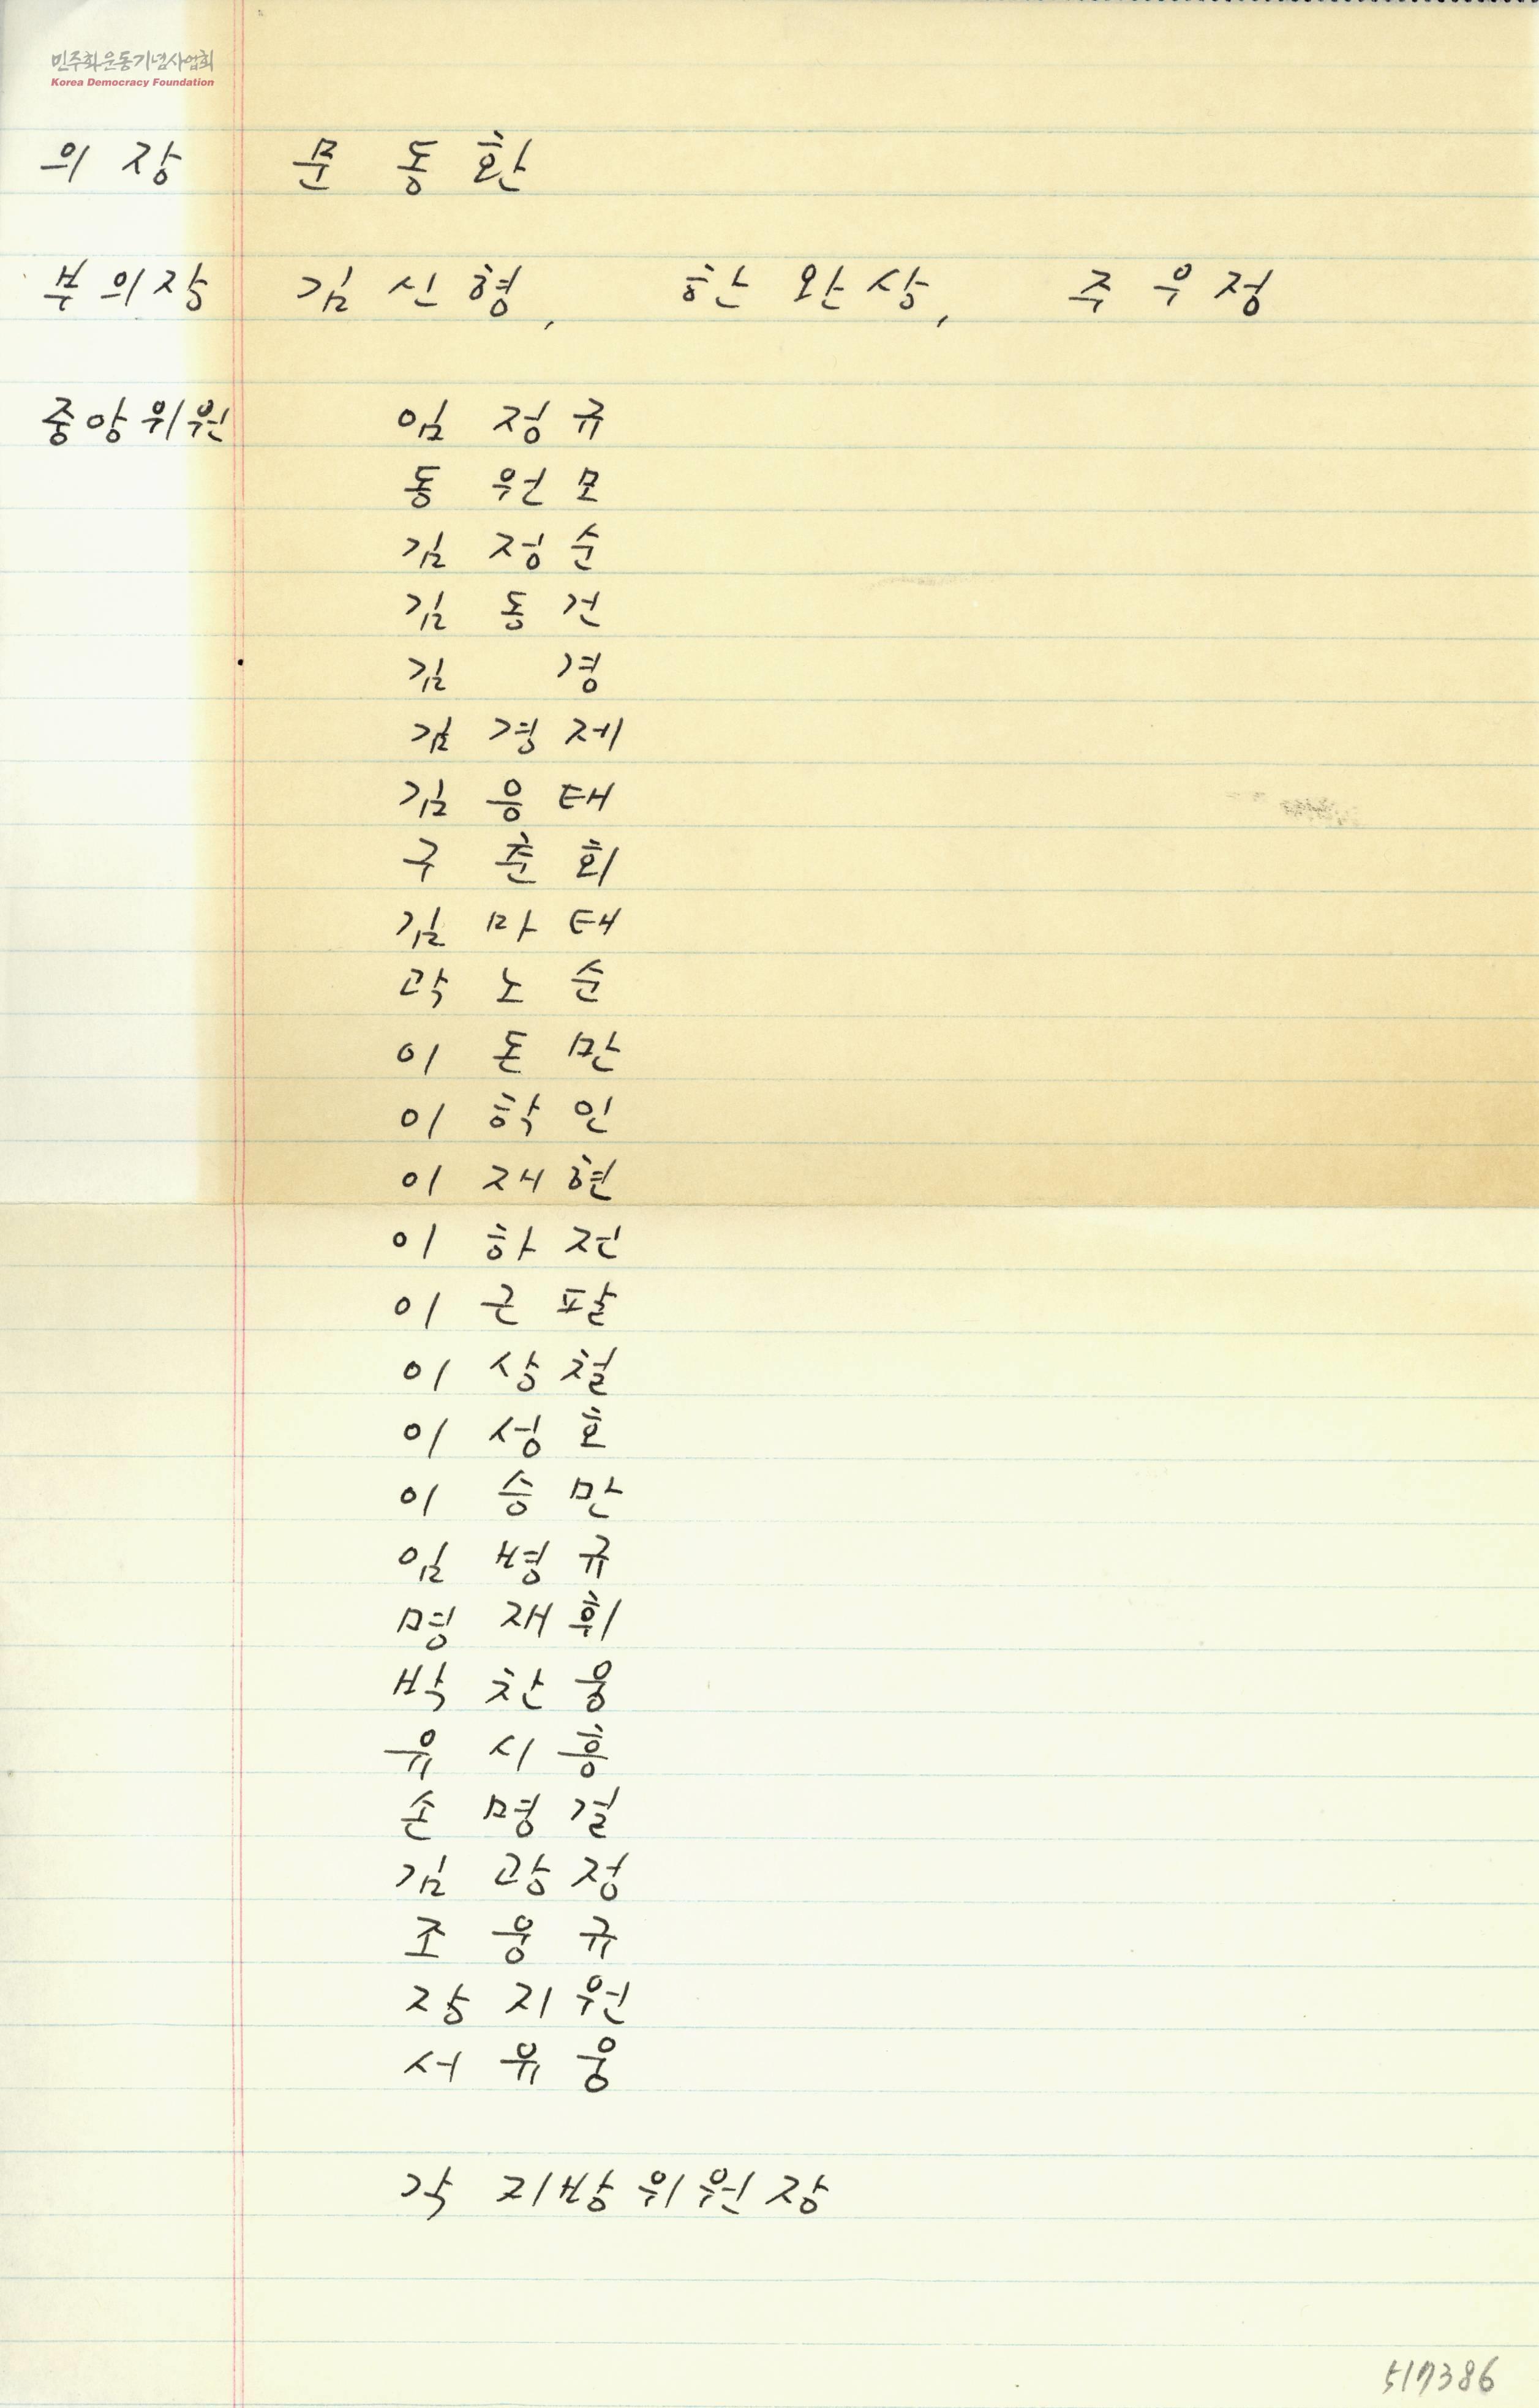 민주화운동기념사업회
Korea Democracy Foundation
의장 문동환
부의장 김신형, 한완상, 주우정
중앙위원 임정규
동원모
김정순
김동건
김 경
김경제
김응태
구춘회
김마태
곽노순
이돈만
이학인
이재현
이하전
이근팔
이상철
이성호
이승만
임병규
명재휘
박찬웅
유시흥
손명걸
김광정
조웅규
장지원
서유웅
각 지방위원장
517386